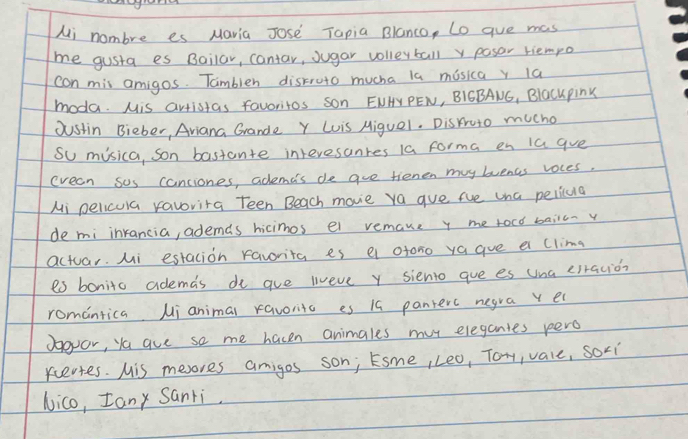 Mi nombre es María José Tapia Blanco, Lo que mas
me gusta es Bailar, cantar, Jugar volleyball y pasar tiempo
con mis amigos. Tambien disfruto mucha la música y la
moda. Mis artistas favoritos son ENHYPEN, BIGBANG, Blackpink
Justin Bieber, Ariana Grande Y Luis Miguel. Disfruto mucho
su música, son bastante interesantes la forma en la que
crean sus canciones, además de que tienen muy buenas voces.
Mi pelicula favorita Teen Beach movie ya que fue una pelicula
de mi infancia, además hicimos el remake y me tocó bailar y
actuar. Mi estación favorita es el otoño ya que el clima
es bonito además de que llueve y siento que es una estación
romántica. Mi animal favorito es la pantera negra y el
Jaguar, ya que se me hacen animales muy elegantes pero
fuertes. Mis mejores amigos son; Esme, Leo, Tony, vale, Sofi
Nico, Ian y Santi.